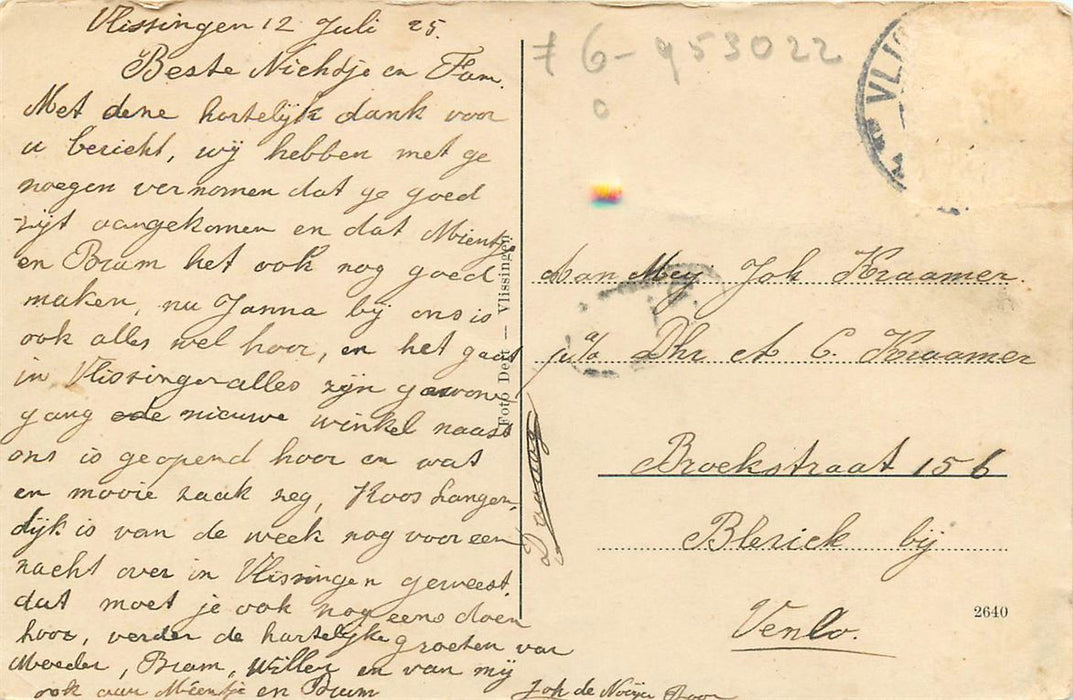 Vlissingen 12 Juli 25.
Beste Nichtje en Fam.
Met deze hartelijk dank voor
u bericht, wij hebben met ge
noegen vernomen dat ge goed
zijt aangekomen en dat Mientje
en Bram het ook nog goed
maken, nu Janna bij ons is
ook alles wel hoor, en het gaat
in Vlissingen alles zijn gewone
gang de nieuwe winkel naast
ons is geopend hoor en wat
en mooie zaak zeg, Koos Langen,
dijk is van de week nog voor een
nacht over in Vlissingen geweest,
dat moet je ook nog eens doen
hoor, verder de hartelijke groeten van
Moeder, Bram, Willem en van mij
ook aan Mientje en Bram
Joh de
7 6-953022
0
VLIS
Aan Mej Joh Kraamer
p/a Dhr A C. Kraamer
Broekstraat 156
Blerick bij
Venlo.
2640
Foto Dert — Vlissingen